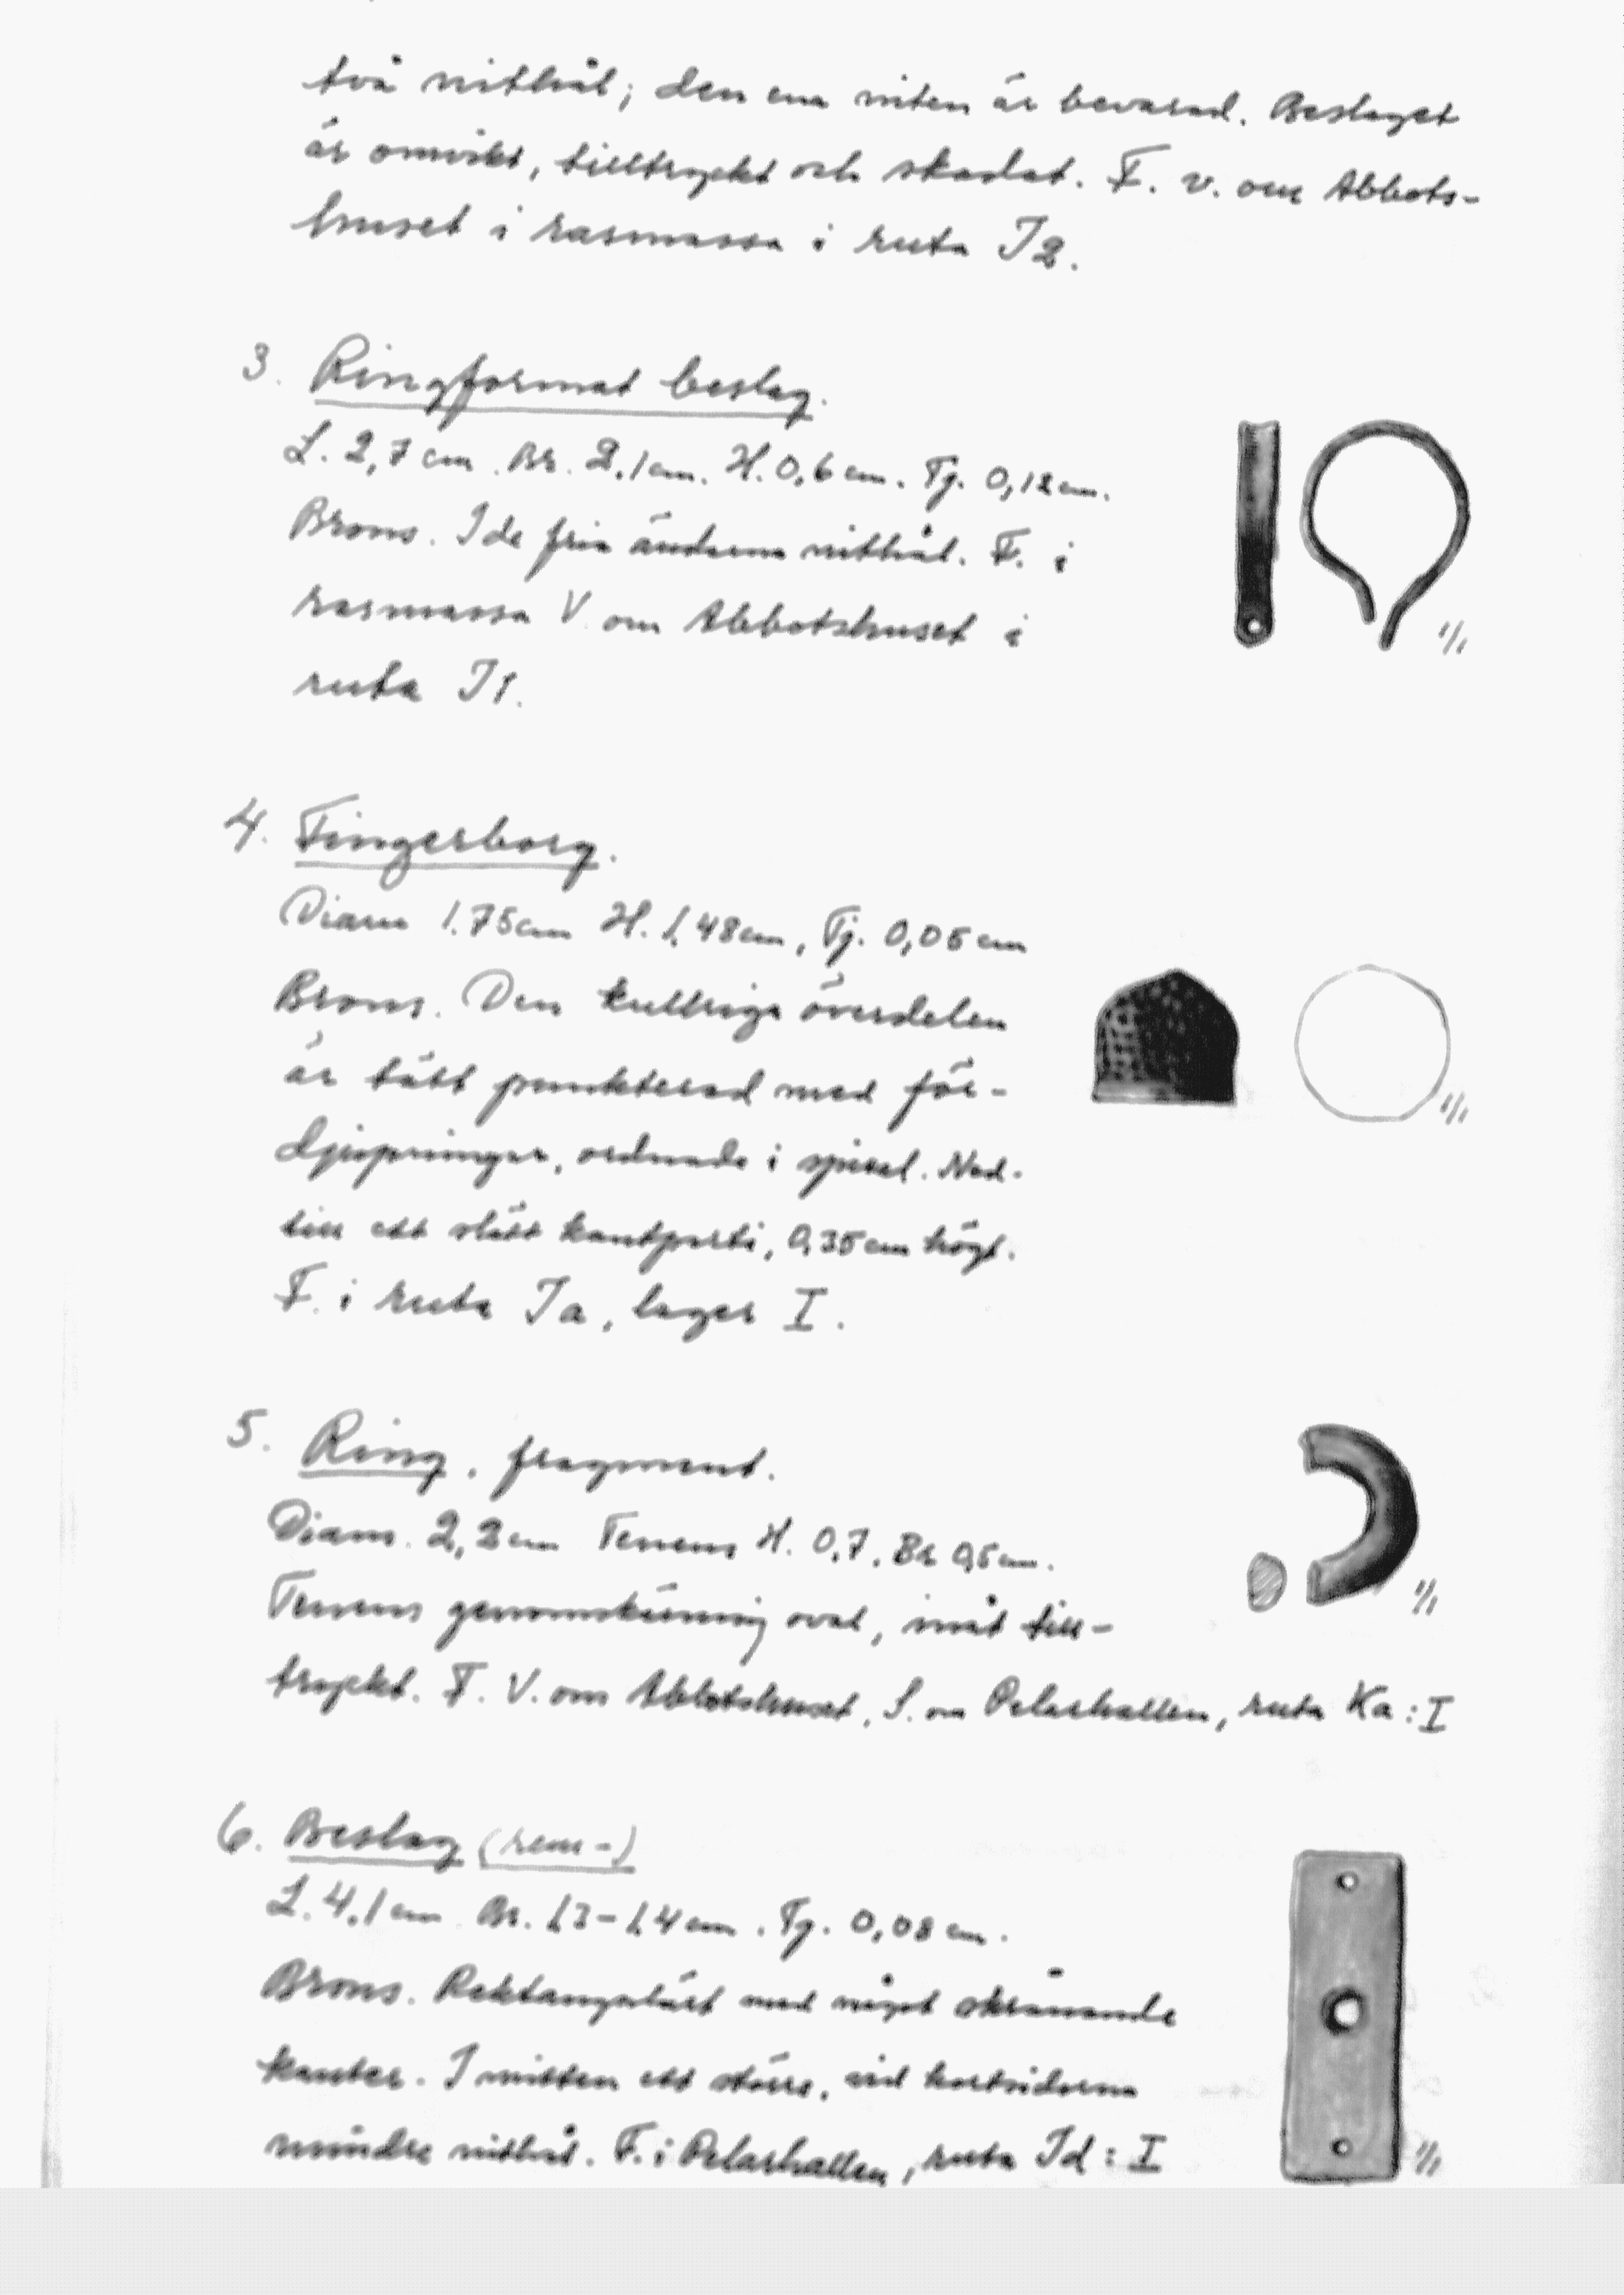 två nithål; den ena niten är bevarad. Beslaget
är omvikt, tilltryckt och skadat. F. v. om Abbots-
huset i rasmassa i ruta J2.
3. Ringformat beslag.
L. 2,7 cm. Br. 2,1 cm. H. 0,6 cm. Tj. 0,12 cm.
Brons. I de fria ändarna nithål. F. i
rasmassa V. om Abbotshuset i
ruta J1.
1/1
4. Fingerborg.
Diam 1.75 cm H. 1,48 cm, Tj. 0,05 cm
Brons. Den kullriga överdelen
är tätt punkterad med för-
djupningar, ordnade i spiral. Ned-
till ett slätt kantparti, 0,35 cm högt.
F. i ruta Ja, lager I.
1/1
5. Ring, fragment.
Diam. 2,2 cm Tenens H. 0,7, Br 0,5 cm.
Tenens genomskärning oval, inåt till-
tryckt. F. V. om Abbotshuset, S. om Pelarhallen, ruta Ka : I
1/1
6. Beslag (rem-)
L. 4,1 cm. Br. 1,3-1,4 cm. Tj. 0,08 cm.
Brons. Rektangulärt med något skrånande
kanter. I mitten ett större, vid kortsidorna
mindre nithål. F. i Pelarhallen, ruta Jd : I
1/1